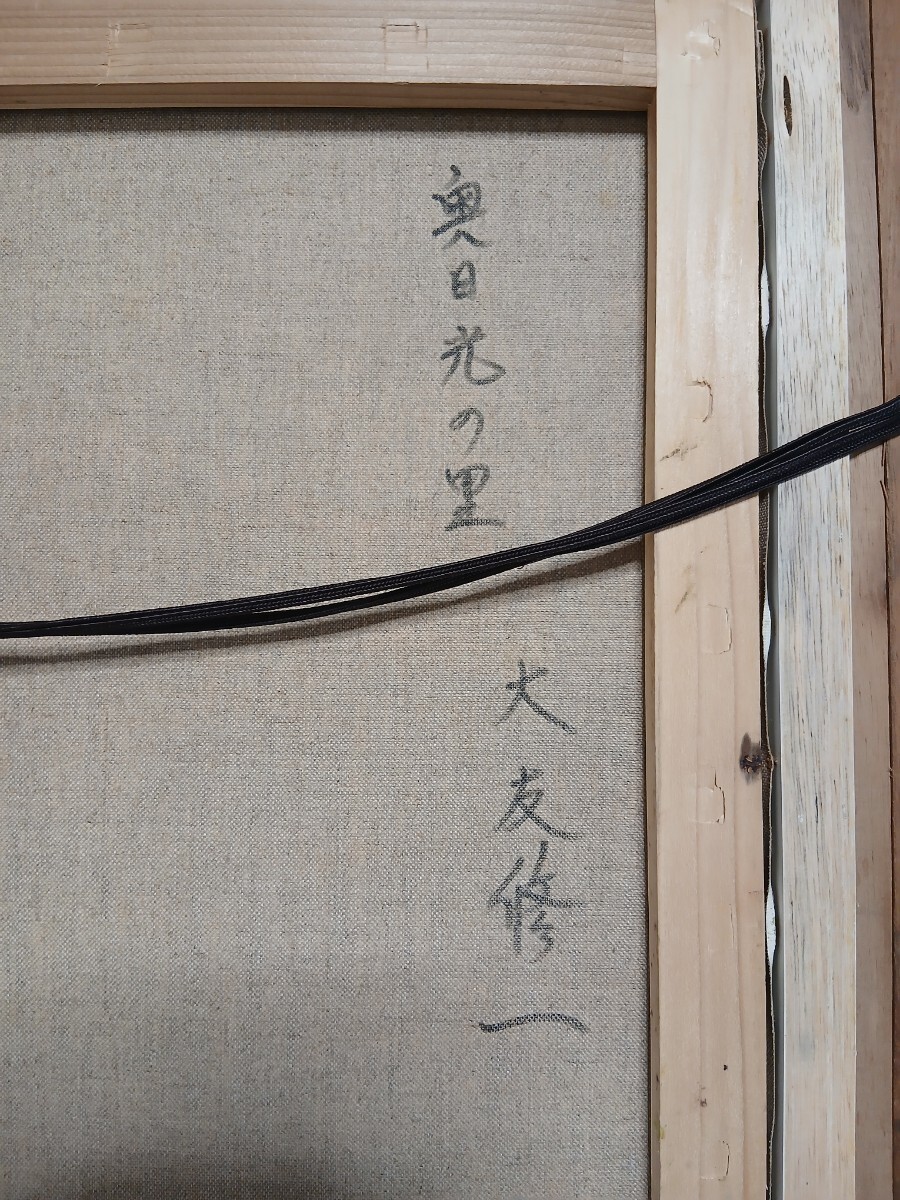 奥日光の里
大友修一